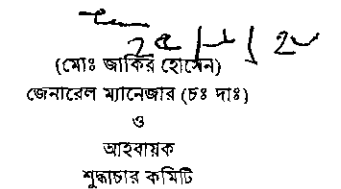 (মোঃ জাকির হোসেন)
জেনারেল ম্যানেজার (চঃ দাঃ)
ও
আহবায়ক
শুদ্ধাচার কমিটি